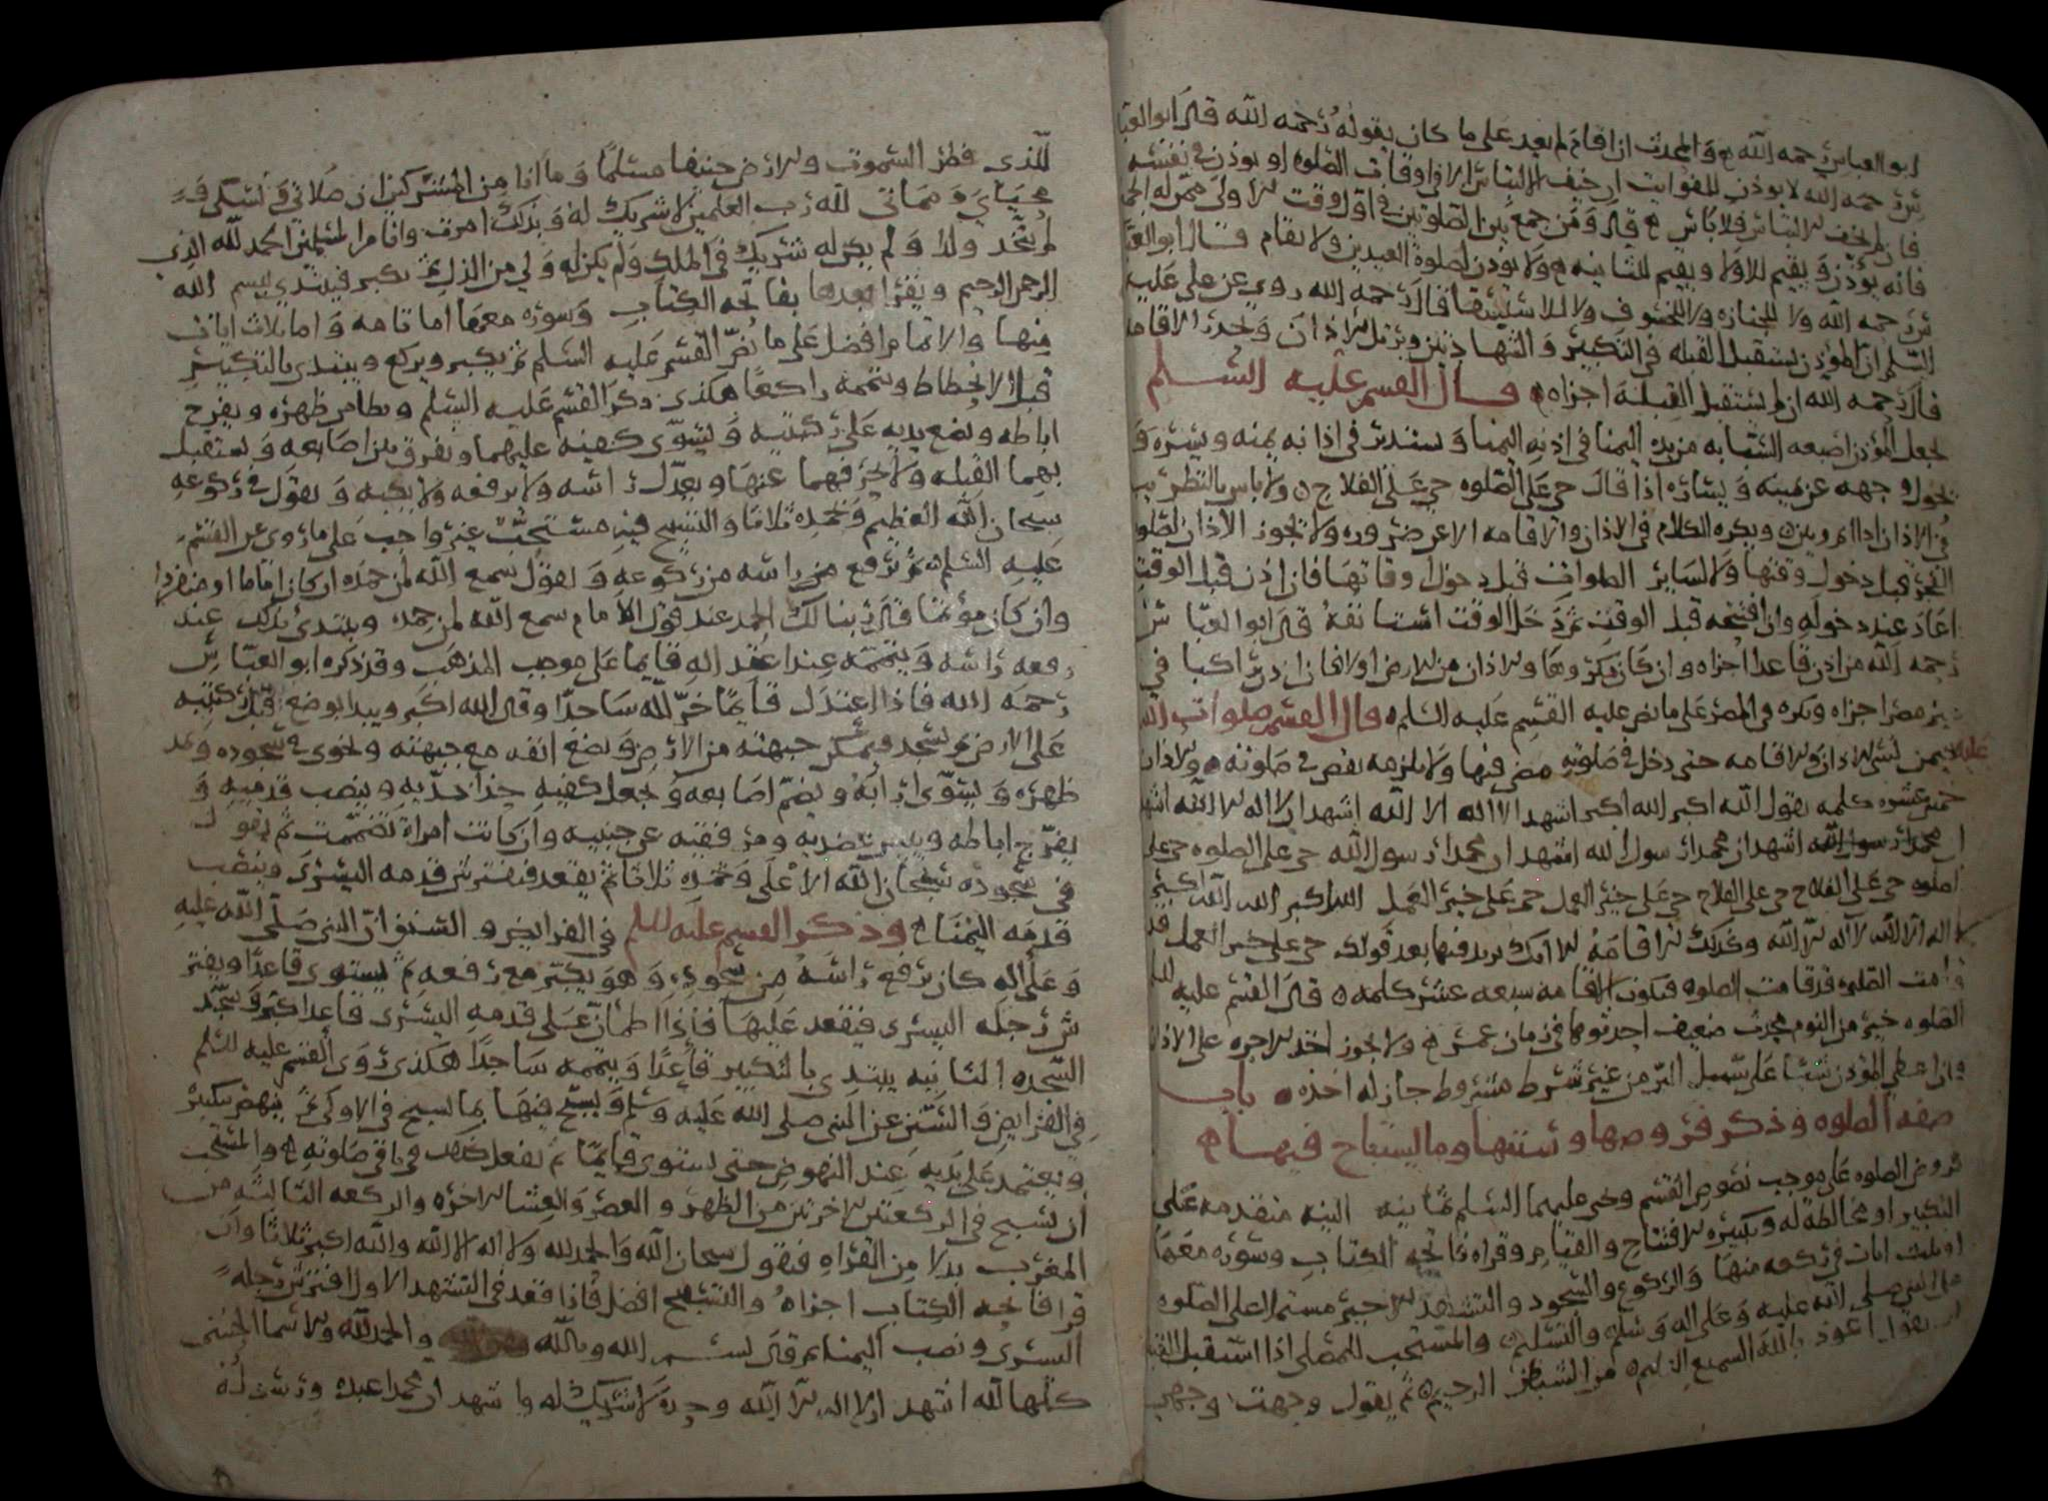 ابو العباس رحمه الله والمحدث ان اقام لم يعد على ما كان يقوله رحمه الله قال ابو العبا
س رحمه الله لا يوذن للفوايت ان خيف الالتباس الا في اوقات الصلوه او يوذن في نفسه
فان لم يخف الالتباس فلا باس قال ومن جمع بين الصلوتين في اول وقت الاولى
فانه يوذن ويقيم للاولا ويقيم للثانيه ولا يوذن لصلوة العيدين ولا يقام قال ابو العبا
س رحمه الله ولا للجنازه ولا للخسوف ولا للاستسقا قال رحمه الله روي عن علي عليه
السلم ان الموذن يستقبل القبله في التكبير والشهادتين ويرتل الاذان ويحدر الاقامه
قال رحمه الله ان لم يستقبل القبلة اجزاه قال القسم عليه السلم
يجعل الموذن اصبعه السبابه من يده اليمنا في اذنه اليمنا ويستدير في اذانه يمنه ويسره و
يحول وجهه عن يمينه ويساره اذا قال حي على الصلوه حي على الفلاح ولا باس بالتطريب
في الاذان اذا ويكره الكلام في الاذان والاقامه الا عن ضروره ولا يجوز الاذان لصلو
الفجر قبل دخول وقتها ولا لساير الصلوات قبل دخول اوقاتها فان اذن قبل الوقت
اعاد عند دخوله وان افتتحه قبل الوقت ثم دخل الوقت استانفه قال ابو العبا س
رحمه الله من اذن قاعدا اجزاه وان كان مكروها والاذان من الارض اولا فان اذن راكبا في
غير مصر اجزاه ويكره في المصر على ما نص عليه القسم عليه السلم قال القسم صلوات الله
عليه فيمن نسي الاذان والاقامه حتى دخل في صلوته مضى فيها ولا يلزمه نقص في صلوته والاذان
خمس عشره كلمه يقول الله اكبر الله اكبر اشهد الا اله الا الله اشهد ان لا اله الا الله اشهد
ان محمدا رسول الله اشهد ان محمدا رسول الله حي على الصلوه حي على
الصلوه حي على الفلاح حي على الفلاح حي على خير العمل حي على خير العمل الله اكبر الله اكبر
لا اله الا الله لا اله الا الله وكذلك الاقامه الا انك تزيد فيها بعد قولك حي على خير العمل قد
قامت الصلوه قد قامت الصلوه فتكون الاقامه سبعه عشر كلمه قال القسم عليه السلم
الصلوه خير من النوم محدث ضعيف احدثوها في زمان عمر ولا يجوز اخذ الاجره على الاذان
وان اعطي الموذن شيئا على سبيل البر من غير شرط مشروط جاز له اخذه باب
صفه الصلوه وذكر فروضها وسننها وما يستباح فيها
فروض الصلوه على موجب نصوص القسم ويحي عليهما السلم ثمانيه النيه متقدمه على
التكبير او مخالطة له وتكبيره الافتتاح والقيام وقراه فاتحه الكتاب وسوره معها
او ثلث ايات في ركعه منها والركوع والسجود والتشهد الاخير مستملا على الصلوه
على النبي صلى الله عليه وعلى اله وسلم والتسليم والمستحب للمصلي اذا استقبل القبله
ان يقول اعوذ بالله السميع العليم من الشيطان الرجيم ثم يقول وجهت وجهي
للذي فطر السموت والارض حنيفا مسلما وما انا من المشركين ان صلاتي ونسكي و
محياي ومماتي لله رب العلمين لا شريك له وبذلك امرت وانا من المسلمين الحمد لله الذي
لم يتخذ ولدا ولم يكن له شريك في الملك ولم يكن له ولي من الذل ثم يكبر فيبتدي ببسم الله
الرحمن الرحيم ويقرا بعدها بفاتحه الكتاب وسوره معها اما تامه واما ثلاث ايات
منها والاتمام افضل على ما نص القسم عليه السلم ثم يكبر ويركع ويبتدي بالتكبير
قبل الانحطاط ويتممه راكعا هكذى ذكر القسم عليه السلم ويطامن ظهره ويفرج
اباطه ويضع يديه على ركبتيه ويسوى كفيه عليهما ويفرق بين اصابعه ويستقبل
بهما القبله ولا يحرفهما عنها ويعدل راسه ولا يرفعه ولا يكبه ويقول في ركوعه
سبحان الله العظيم وبحمده ثلاثا والتسبيح فيه مستحب غير واجب على ما روي عن القسم
عليه السلم ثم يرفع راسه من ركوعه ويقول سمع الله لمن حمده ان كان اماما او منفردا
وان كان موتما قال ربنا لك الحمد عند قول الامام سمع الله لمن حمده ويبتدئ بذلك عند
رفعه راسه ويتممه عند اعتداله قايما على موجب المذهب وقد ذكره ابو العباس
رحمه الله فاذا اعتدل قايما خر لله ساجدا وقال الله اكبر ويبدا بوضع قبل ركبتيه
على الارض ثم يسجد فيمكن جبهته من الارض ويضع انفه مع جبهته ويخوى في سجوده ويمد
ظهره ويسوى ارابه ويضم اصابعه ويجعل كفيه حذا خديه وينصب قدميه و
يفرج اباطه ويبين عضديه ومرفقيه عن جنبيه وان كانت امراة تضممت ثم يقول
في سجوده سبحان الله الاعلى وبحمده ثلاثا ثم يقعد فيفترش قدمه اليسرى وينصب
قدمه اليمنا وذكر القسم عليه السلم في الفرايض والسنن ان النبي صلى الله عليه
وعلى اله كان يرفع راسه من سجوده وهو يكبر مع رفعه ثم يستوى قاعدا ويفتر
ش رجله اليسرى فيقعد عليها فاذا اطمان على قدمه اليسرى قاعدا كبر وسجد
السجده الثانيه يبتدي بالتكبير قاعدا ويتممه ساجدا هكذى روى القسم عليه السلم
في الفرايض والسنن عن النبي صلى الله عليه وسلم ويسبح فيها بما سبح في الاولى ثم ينهض بتكبير
ويعتمد على يديه عند النهوض حتى يستوى قايما ثم يفعل كذلك في باقي صلوته والمستحب
ان يسبح في الركعتين الاخرتين من الظهر والعصر والعشا الاخره والركعه الثالثه من
المغرب بدلا من القراه فيقول سبحان الله والحمد لله ولا اله الا الله والله اكبر ثلاثا وان
قرا فاتحه الكتاب اجزاه والتسبيح افضل فاذا قعد في التشهد الاول افترش رجله
اليسرى ونصب اليمنا ثم قال بسم الله وبالله والحمد لله والاسما الحسنى
كلها لله اشهد ان لا اله الا الله وحده لا شريك له واشهد ان محمدا عبده ورسوله